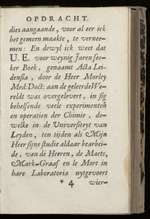 OPDRACHT.
dies aangaande, voor al eer ick
het gemeen maakte, te vernee-
men: En dewyl ick weet dat
U E. voor weynig Jaren see-
ker Boek, genaamt Alla Ley-
densia, door de Heer Morley
Med. Doct: aan de geleerde We-
reldt was overgelevert, in sig
behelsende veele experimenten
en operatien der Chimie, de-
welke in de Universiteyt van
Leyden, ten tijden als Mijn
Heer sijne studie aldaar bearbei-
de, van de Heeren, de Maets,
Marg-Graaf en le Mort in
hare Laboratoria uytgevoert
* 4 wier-